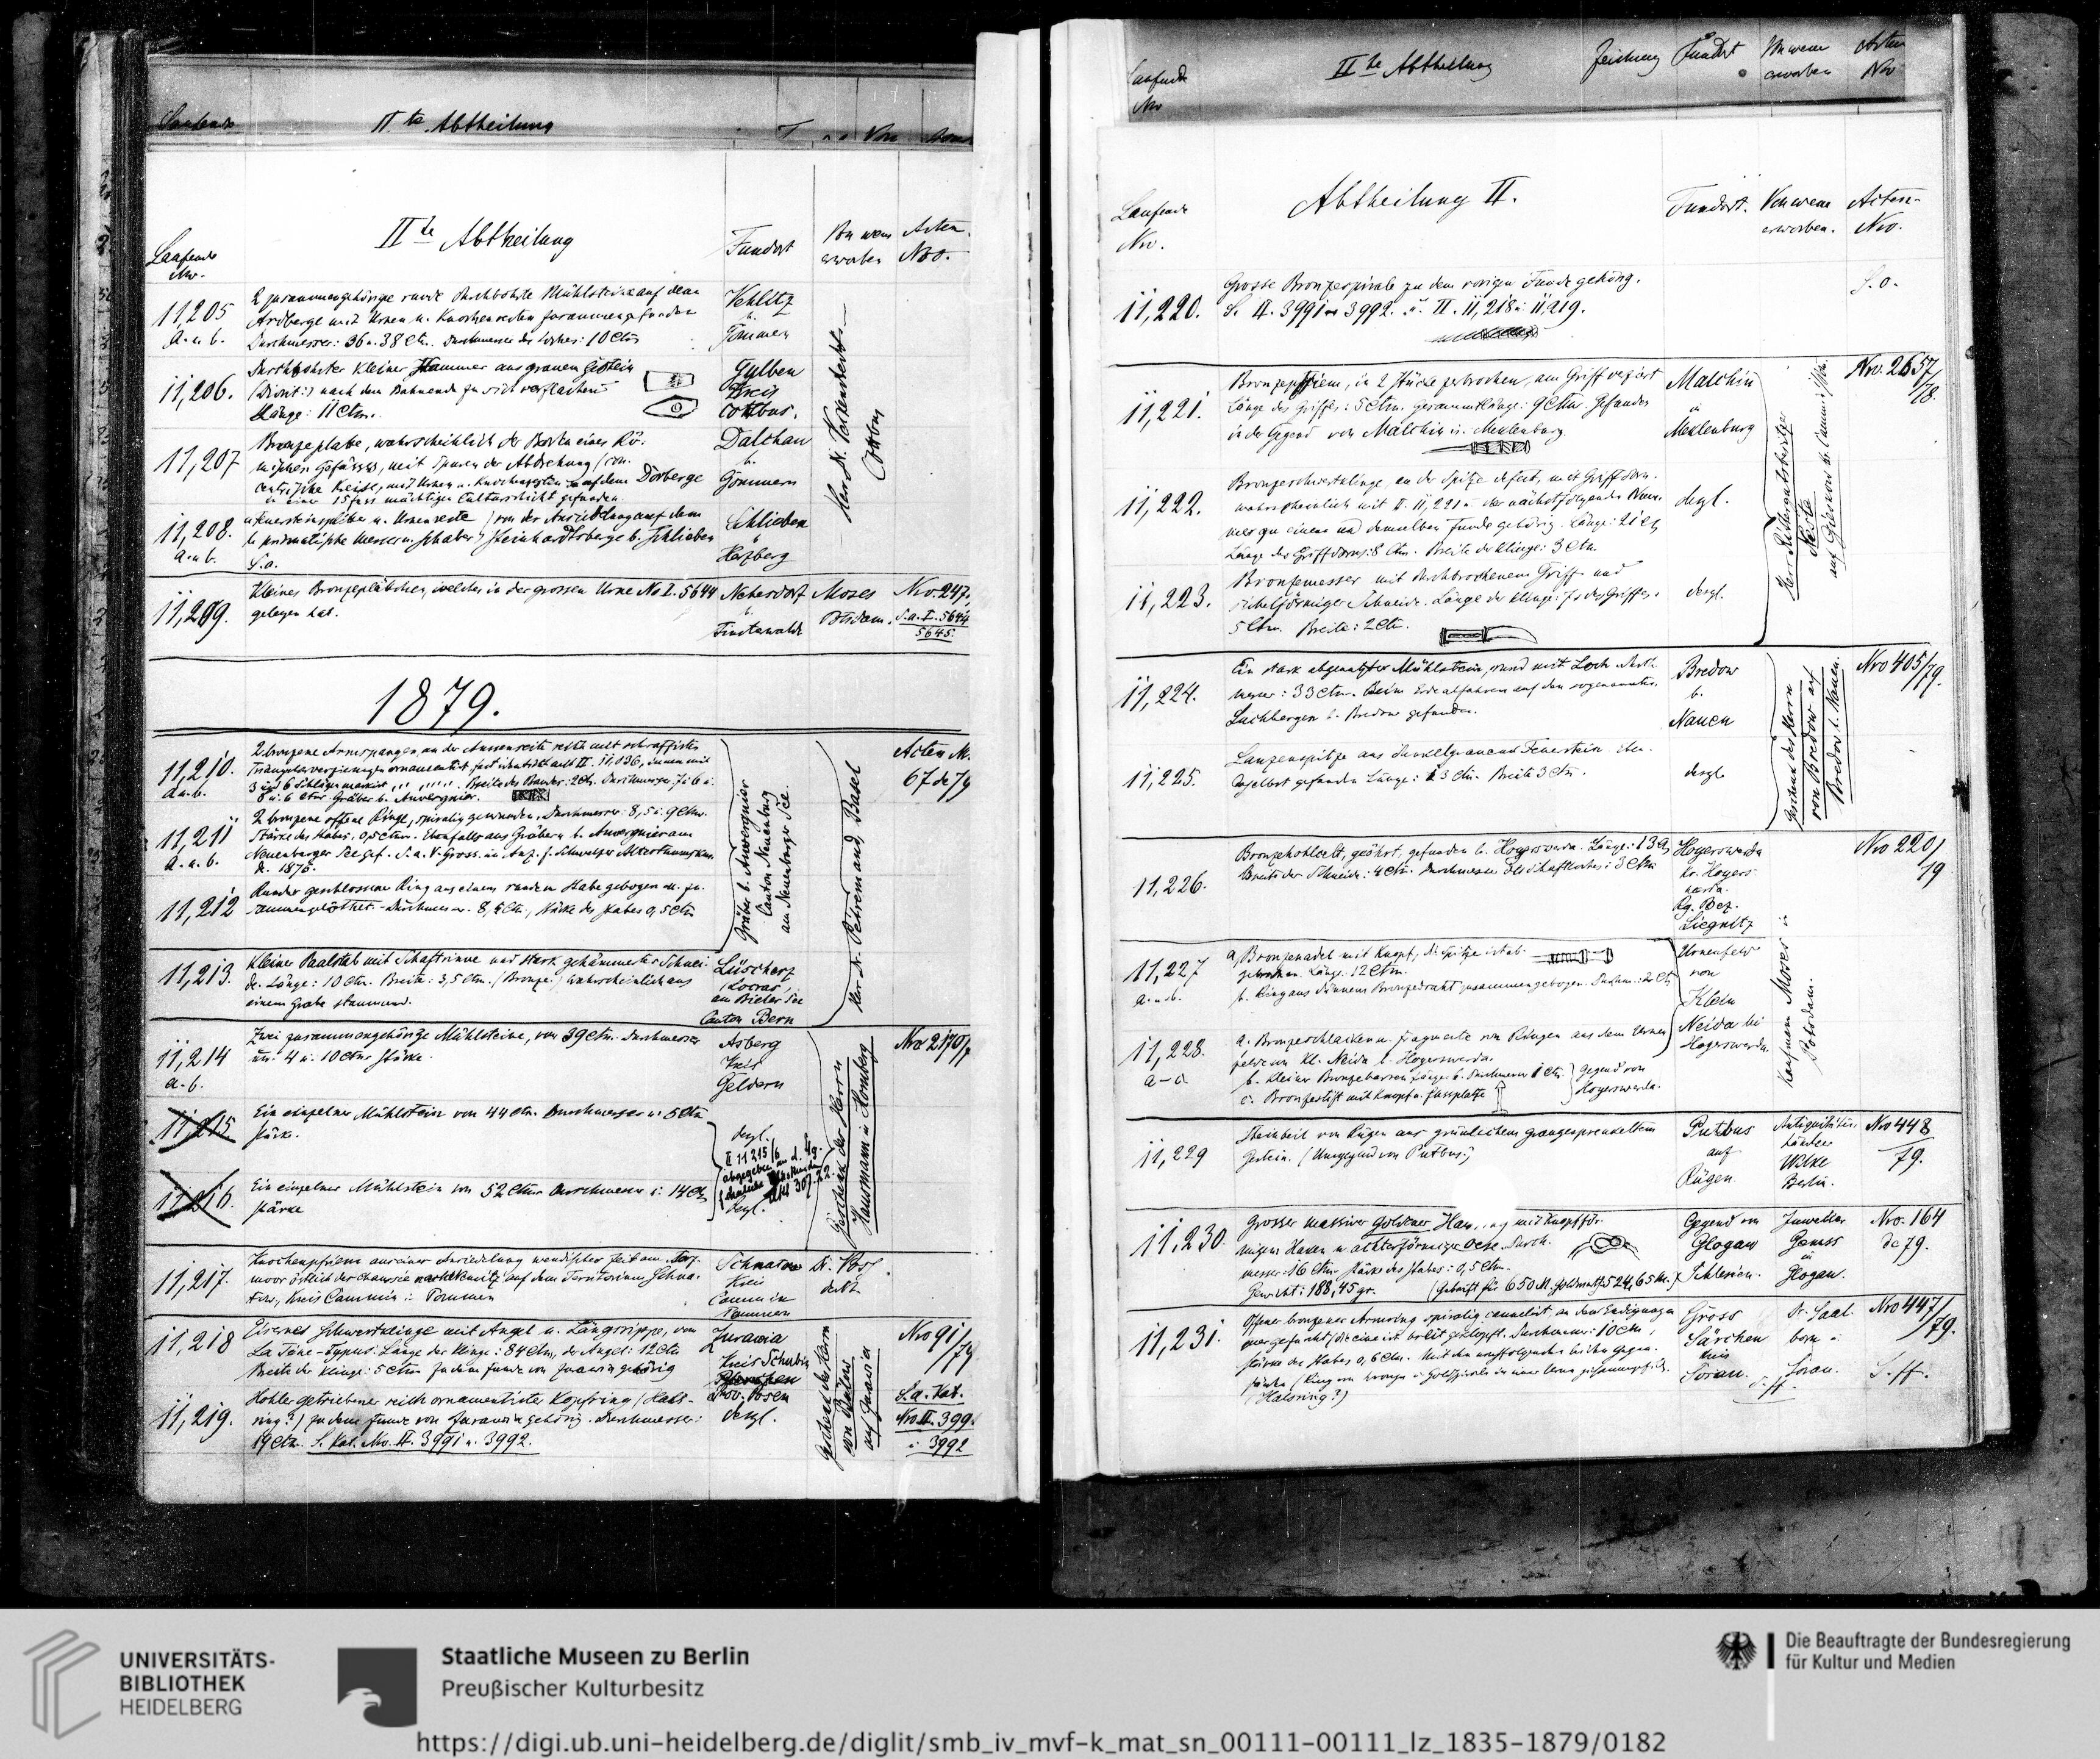 Laufende
IIte Abtheilung
Laufende
Nro.
IIte Abtheilung
Fundort
Von wem
erworben
Acten
Nro.
11,205
a. u. b.
2 zusammengehörige runde durchbohrte Mühlsteine auf dem
Ardberge mit Urnen u. Knochenresten zusammen gefunden
Durchmesser: 36 u. 38 Ctm. Durchmesser des Loches: 10 Ctm
Vehlitz
b.
Gommern
11,206.
Durchbohrter kleiner Hammer aus grauem Gestein
(Diorit?) nach dem Bahnende zu sich verflachend
Länge: 11 Ctm.
Gulben
Kreis
Cottbus.
11,207
Bronzeplatte, wahrscheinlich der Boden eines Rö-
mischen Gefässes, mit Spuren der Abdrehung (con-
centrische Kreise, mit Urnen u. Knochenresten auf dem Dorberge
in einer 15 fuss mächtigen Culturschicht gefunden.
Dalchau
b.
Gommern
11,208.
a. u. b.
a, Feuersteinspähne u. Urnenreste
b, prismatische Messer u. Schaber
von der Ansiedelung auf dem
Steinhardtsberge b. Schlieben
S. o.
Schlieben
Herzberg
Herr Dr. Voskenderbs
Cottbus
11,209.
Kleines Bronzeplättchen, welches in der grossen Urne No I. 5644
gelegen hat.
Nehesdorf
b.
Finsterwalde
Moses
Potsdam.
Nro. 247,
S. a. I. 5644
5645.
1879.
11,210.
a. u. b.
2 bronzene Armspangen an der Aussenseite reich mit schraffirten
Triangelverzierungen ornamentirt fast identisch mit II. 11,036, innen mit
3 und 6 Schlägermarken Breite des Bandes: 2 Ctm. Durchmesser 7 : 6 u.
8 u. 6 Ctm. Gräber b. Auvergnier.
Acten N.
67 de 79
11,211
a. u. b.
2 bronzene offene Ringe, spiralig gewunden. Durchmesser: 8,5 u. 9 Ctm.
Stärke des Stabes: 0,5 Ctm. Ebenfalls aus Gräbern b. Auvergnier am
Neuenburger See gef. S. a. V. Gross. in Anz. f. Schweizer Alterthumskunde.
de. 1876.
11,212
Runder geschlossener Ring aus einem runden Stabe gebogen u. zu-
sammengelöthet. Durchmesser 8,5 Ctm, Stärke des Stabes 0,5 Ctm
Gräber b. Auvergnier
Canton Neuenburg
am Neuenburger See.
Herr Dr. Pétremand, Basel
11,213.
Kleiner Paalstab mit Schaftrinne und stark gehämmerter Schnei-
de. Länge: 10 Ctm. Breite: 3,5 Ctm. (Bronze.) Wahrscheinlich aus
einem Grabe stammend.
Lüscherz
(Locras)
am Bieler See
Canton Bern
11,214
a. b.
Zwei zusammengehörige Mühlsteine, von 39 Ctm. Durchmesser
u. 4 u. 10 Ctm Stärke.
Asberg
Kreis
Geldern
Nro 2170/7
11,215
Ein einzelner Mühlstein von 44 Ctm. Durchmesser u. 5 Ctm
Stärke.
desgl.
II 11215/6
abgegeben an d.
307. 22.
11,216.
Ein einzelner Mühlstein von 52 Ctm Durchmesser u. 14 Ctm
Stärke
desgl.
Geschenk des Herrn
Hausmann in Homberg
11,217.
Knochenpfriem aus einer Ansiedelung wendischer Zeit am Torf-
moor östlich der Chaussee nach auf dem Territorium Schna-
tow, Kreis Cammin in Pommern
Schnatow
Kreis
Cammin
Pommern
Dr. Voss
dedit
11,218
Eiserne Schwertklinge mit Angel u. Längsrippe, von
La Tène-Typus. Länge der Klinge: 84 Ctm, der Angel: 12 Ctm
Breite der Klinge: 5 Ctm. Zu dem Funde von Jurawia gehörig
Jurawia
Kreis Schubin
Prov. Posen
Nro 91/
79
11,219.
Hohler getriebener reich ornamentirter Kopfring (Hals-
ring?) Zu dem Funde von Jurawia gehörig. Durchmesser:
19 Ctm. S. Kat. No. II. 3991 u. 3992.
desgl.
Geschenk des Herrn
von
auf Jurawia
S. a. Kat.
Nro II. 399.
u. 3992
Laufende
Nro
IIte Abtheilung
Zeichnung
Fundort
Von wem
erworben
Acten
Nro
Laufende
Nro.
Abtheilung II.
Fundort.
Von wem
erworben.
Acten-
Nro.
11,220.
Grosse Bronzespirale zu dem vorigen Funde gehörig.
S. II. 3991 u 3992. u. II. 11,218 u. 11,219.
S. o.
11,221.
Bronzepfriem, in 2 Stücke zerbrochen, am Griff verziert
Länge des Griffes: 5 Ctm. Gesammtlänge: 9 Ctm. Gefunden
in der Gegend von Malchin i. Meklenburg.
Malchin
in
Meklenburg
Nro. 2657/
78.
11,222.
Bronzeschwertklinge, an der Spitze defect, mit Griffdorn.
wahrscheinlich mit II. 11,221 u. der nächstfolgenden Num-
mer zu einem und demselben Funde gehörig. Länge: 21 Ctm
Länge des Griffdorns: 8 Ctm. Breite der Klinge: 3 Ctm.
desgl.
11,223.
Bronzemesser mit durchbrochenem Griff und
sichelförmiger Schneide. Länge der Klinge: 7, des Griffes:
5 Ctm. Breite: 2 Ctm.
desgl.
Herr Rittergutsbesitzer
11,224.
Ein stark abgenutzter Mühlstein, rund mit Loch. Durch-
messer: 33 Ctm. Beim Erdeabfahren auf den sogenannten
Luchbergen b. Bredow gefunden.
Bredow
b.
Nauen
Nro 405/
79.
11,225.
Lanzenspitze aus dunkelgrauem Feuerstein eben-
daselbst gefunden Länge: 13 Ctm. Breite 3 Ctm.
desgl.
Geschenk des Herrn
von Bredow auf
Bredow b. Nauen.
11,226.
Bronzehohlcelt, geöhrt, gefunden b. Hoyerswerda. Länge: 13 Ctm
Breite der Schneide: 4 Ctm. Durchmesser des Schaftloches: 3 Ctm
Hoyerswerda
Kr. Hoyers-
werda.
Rg. Bez.
Liegnitz
Nro 220/
79
11,227
a. u. b.
a, Bronzenadel mit Knopf, die Spitze ist ab-
gebrochen. Länge: 12 Ctm.
b. Ring aus dünnem Bronzedraht zusammengebogen. Durchm.: 2 Ctm
Urnenfeld
von
Klein
Neida bei
Hoyerswerda.
11,228.
a-c.
a. Bronzeschlacken u. Fragmente von Ringen aus dem Urnen-
felde von Kl. Neida b. Hoyerswerda.
b. kleiner Bronzebarren Länge: 6. Durchmesser 1 Ctm.
c. Bronzestift mit Knopf u. Fussplatte
Gegend von
Hoyerswerda.
Kaufmann Moses in
Potsdam.
11,229
Steinbeil von Rügen aus grünlichem graugesprenkeltem
Gestein. (Umgegend von Putbus.)
Putbus
auf
Rügen.
Antiquitäten-
händler
Welke
Berlin.
Nro 448
79.
11,230.
Grosser massiver goldener mit knopfför-
migem Haken u. achterförmiger Oese. Durch-
messer: 16 Ctm. Stärke des Stabes: 0,5 Ctm.
Gewicht: 188,45 gr. (Gekauft für 650 M. Goldwerth 524,65 M.)
Gegend von
Glogau
Schlesien.
Juwelier
Gemss
in
Glogau.
Nro. 164
de 79.
11,231.
Offener bronzener Armring spiralig cannelirt an den Endigungen
quergefurcht, die eine ist breit geklopft. Durchmesser: 10 Ctm,
Stärke des Stabes 0,6 Ctm. Mit den nachfolgenden beiden Gegen-
ständen (Ring von Bronze u. Goldspirale in einer Urne zusammengef.
(Halsring?)
Gross
Särchen
Kreis
Sorau.
Dr. Saal-
born in
Sorau.
S. ff.
Nro 447/
79.
S. ff.
UNIVERSITÄTS-
BIBLIOTHEK
HEIDELBERG
Staatliche Museen zu Berlin
Preußischer Kulturbesitz
Die Beauftragte der Bundesregierung
für Kultur und Medien
https://digi.ub.uni-heidelberg.de/diglit/smb_iv_mvf-k_mat_sn_00111-00111_lz_1835-1879/0182